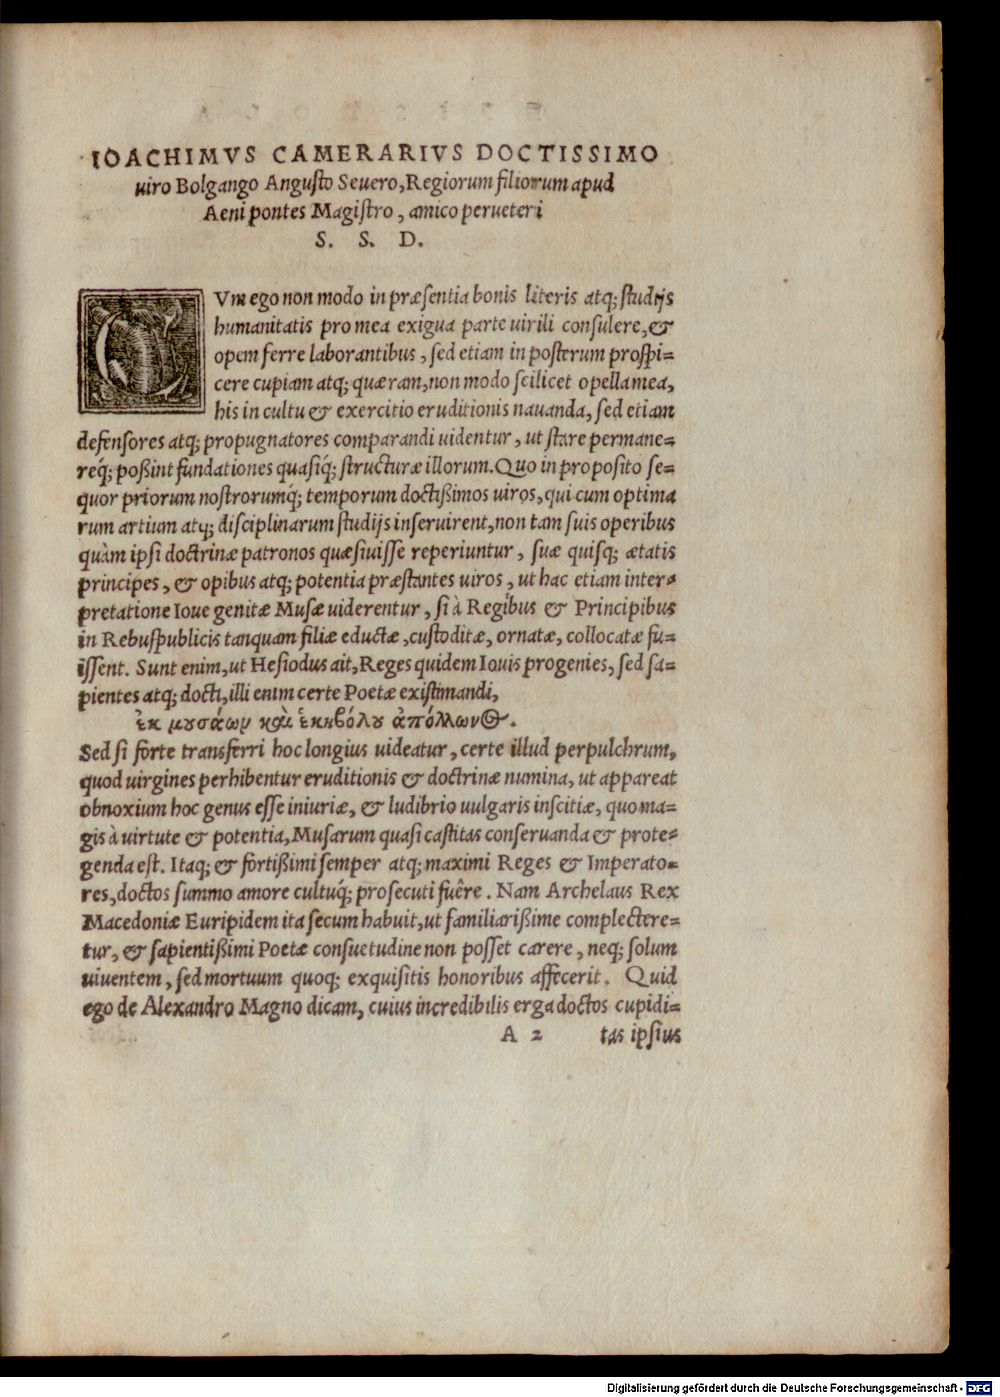 IOACHIMVS CAMERARIVS DOCTISSIMO
uiro Bolgango Angusto Seuero, Regiorum filiorum apud
Aeni pontes Magistro, amico perueteri
S. S. D.
CVm ego non modo in præsentia bonis literis atq; studijs
humanitatis pro mea exigua parte uirili consulere, &
opem ferre laborantibus, sed etiam in posterum prospi=
cere cupiam atq; quæram, non modo scilicet opella mea,
his in cultu & exercitio eruditionis nauanda, sed etiam
defensores atq; propugnatores comparandi uidentur, ut stare permane=
req́; poßint fundationes quasiq́; structuræ illorum. Quo in proposito se=
quor priorum nostrorumq́; temporum doctißimos uiros, qui cum optima
rum artium atq; disciplinarum studijs inseruirent, non tam suis operibus
quàm ipsi doctrinæ patronos quæsiuisse reperiuntur, suæ quisq; ætatis
principes, & opibus atq; potentia præstantes uiros, ut hac etiam inter=
pretatione Ioue genitæ Musæ uiderentur, si à Regibus & Principibus
in Rebuspublicis tanquam filiæ eductæ, custoditæ, ornatæ, collocatæ fu=
issent. Sunt enim, ut Hesiodus ait, Reges quidem Iouis progenies, sed sa=
pientes atq; docti, illi enim certe Poetæ existimandi,
ἐκ μουσάων καὶ ἑκηβόλου ἀπόλλωνος.
Sed si forte transferri hoc longius uideatur, certe illud perpulchrum,
quod uirgines perhibentur eruditionis & doctrinæ numina, ut appareat
obnoxium hoc genus esse iniuriæ, & ludibrio uulgaris inscitiæ, quo ma=
gis à uirtute & potentia, Musarum quasi castitas conseruanda & prote=
genda est. Itaq; & fortißimi semper atq; maximi Reges & Imperato=
res, doctos summo amore cultuq́; prosecuti fuêre. Nam Archelaus Rex
Macedoniæ Euripidem ita secum habuit, ut familiarißime complectere=
tur, & sapientißimi Poetæ consuetudine non posset carere, neq; solum
uiuentem, sed mortuum quoq; exquisitis honoribus affecerit. Quid
ego de Alexandro Magno dicam, cuius incredibilis erga doctos cupidi=
A 2 tas ipsius
Digitalisierung gefördert durch die Deutsche Forschungsgemeinschaft - DFG